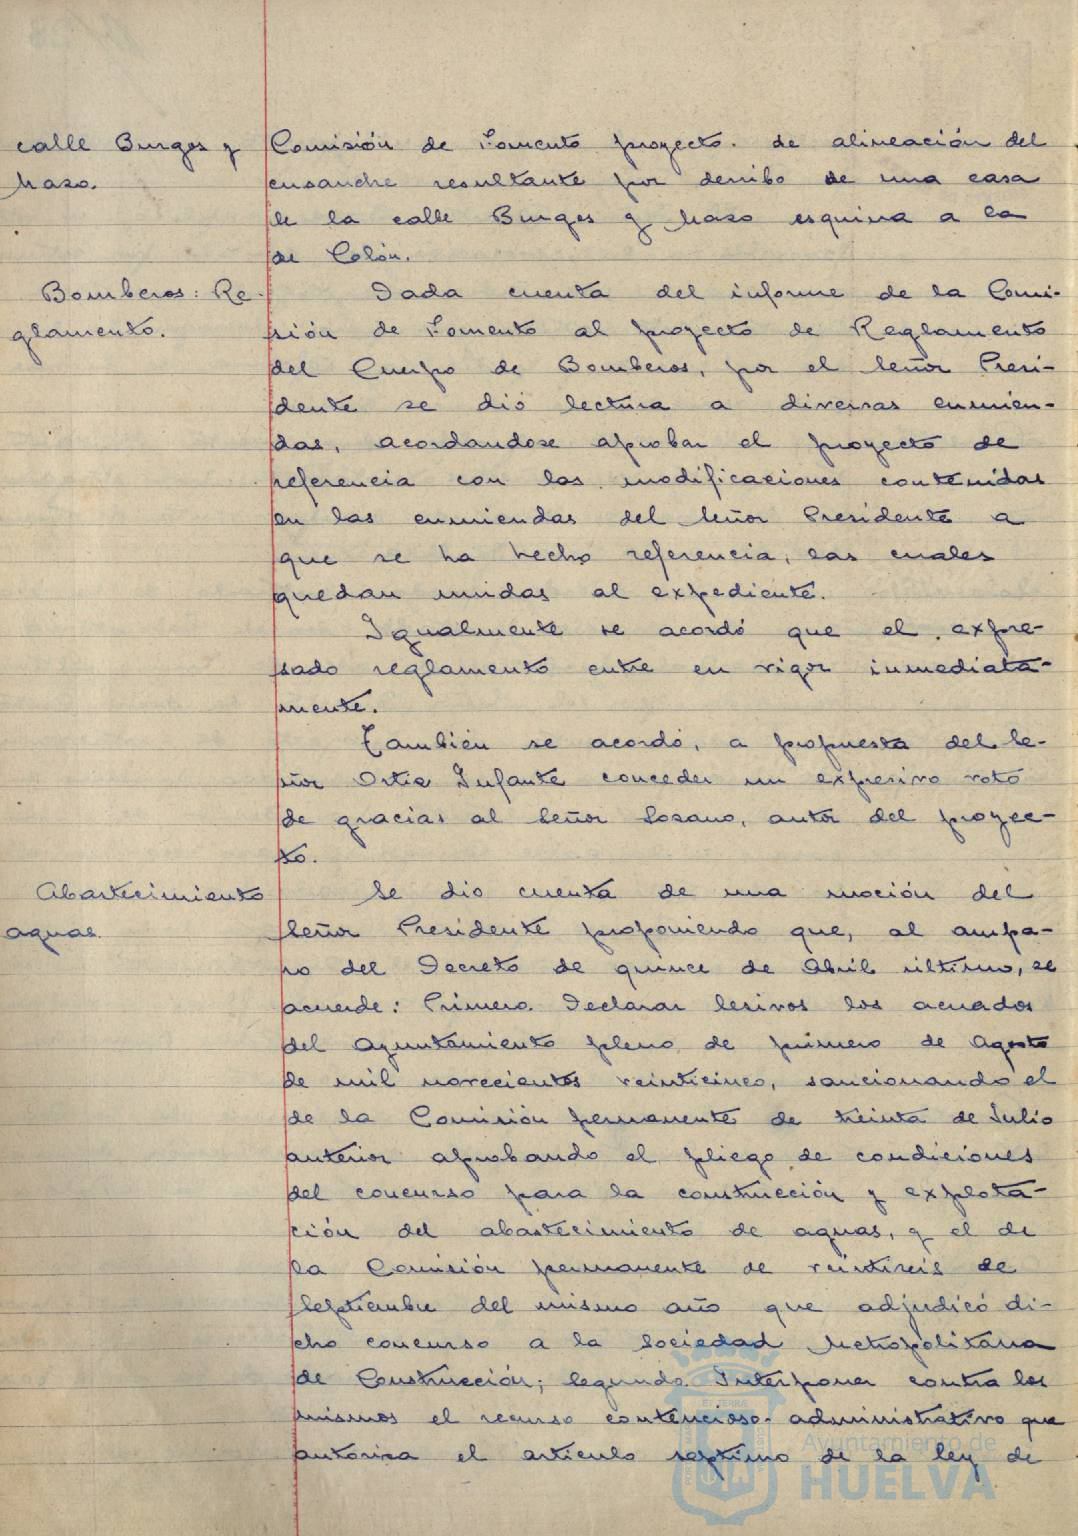 calle Burgos y
Mazo.
Comisión de Fomento proyecto de alineación del
ensanche resultante por derribo de una casa
de la calle Burgos y Mazo esquina a la
de Colón.
Bomberos: Re-
glamento.
Dada cuenta del informe de la Comi-
sión de Fomento al proyecto de Reglamento
del Cuerpo de Bomberos, por el Señor Presi-
dente se dió lectura a diversas enmien-
das, acordandose aprobar el proyecto de
referencia con las modificaciones contenidas
en las enmiendas del Señor Presidente a
que se ha hecho referencia, las cuales
quedan unidas al expediente.
Igualmente se acordó que el expre-
sado reglamento entre en vigor inmediata-
mente.
También se acordó, a propuesta del Se-
ñor Ortiz Infante conceder un expresivo voto
de gracias al Señor Lozano, autor del proyec-
to.
Abastecimiento
aguas.
Se dio cuenta de una moción del
Señor Presidente proponiendo que, al ampa-
ro del Decreto de quince de Abril último, se
acuerde: Primero. Declarar lesivos los acuerdos
del Ayuntamiento pleno de primero de Agosto
de mil novecientos veinticinco, sancionando el
de la Comisión permanente de treinta de Julio
anterior aprobando el pliego de condiciones
del concurso para la construcción y explota-
ción del abastecimiento de aguas, y el de
la Comisión permanente de veintiseis de
Septiembre del mismo año que adjudicó di-
cho concurso a la Sociedad Metropolitana
de Construcción; Segundo. Interponer contra los
mismos el recurso contencioso-administrativo que
autoriza el artículo septimo de la ley de
Ayuntamiento de
HUELVA